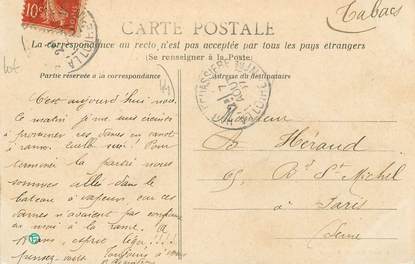 10c
Tabacs
CARTE POSTALE
La correspondance au recto n'est pas acceptée par tous les pays étrangers
(Se renseigner à la Poste)
lot
Partie réservée à la correspondance
Adresse du destinataire
C'est aujourd'hui nous
le matin je me suis
à promener ces dames en canot
à rames, quelle suée! Pour
terminer la partie nous
sommes allés dans le
bateau à vapeur, car ces
dames n'avaient pas confiance
en moi à la rame. O
esprit léger!!!!
pensez-vous Toujours à vous
Monsieur
B. Héraud
65, Bd St Michel
à Paris
Seine